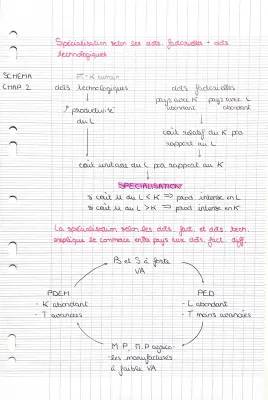 Spécialisation selon les dots. factorielles + dots
technologiques
SCHEMA
CHAP 2
K humain
dots technologiques
dots factorielles
pays avec K
abondant
pays avec L
abondant
productivité
du L
coût relatif du K par
rapport au L
coût unitaire du L par rapport au K
SPECIALISATION
si coût u du L < K ⇒ prod intense en L
si coût u du L > K ⇒ prod intense en K
La spécialisation selon les dots. fact. et dots. tech.
explique le commerce entre pays aux dots. fact. diff.
B et S à forte
VA
PDEM
- K abondant
- T avancées
PED
- L abondant
- T moins avancées
M.P., P.P agrico-
les manufacturés
à faible VA